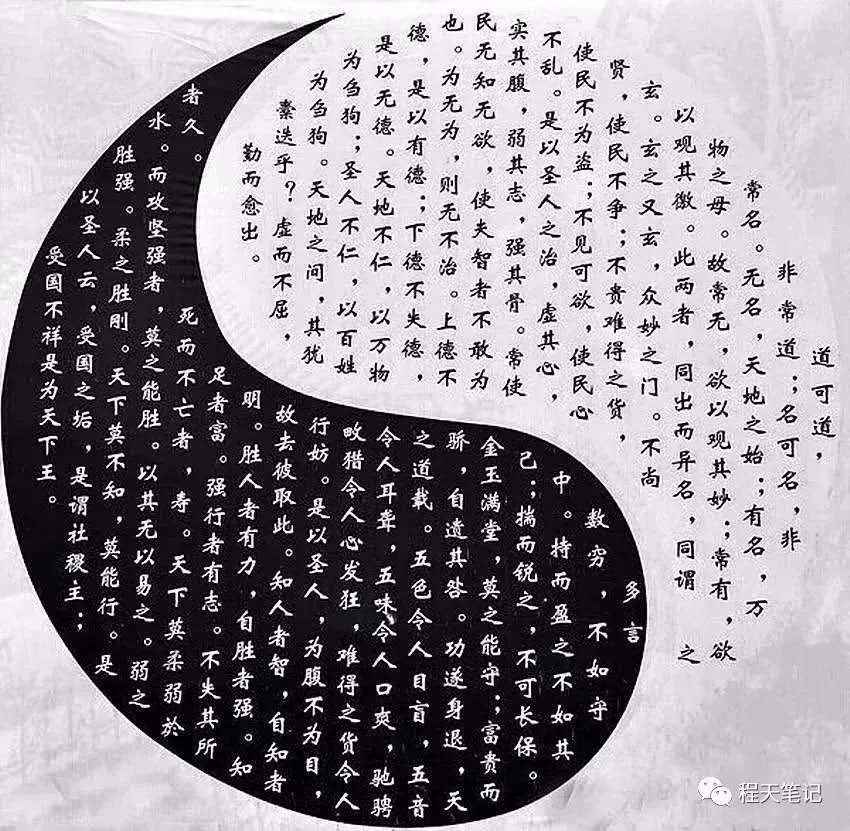 道可道，
非常道；名可名，非
常名。无名，天地之始；有名，万
物之母。故常无，欲以观其妙；常有，欲
以观其徼。此两者，同出而异名，同谓 之
玄。玄之又玄，众妙之门。不尚
贤，使民不争；不贵难得之货，
使民不为盗；不见可欲，使民心
不乱。是以圣人之治，虚其心，
实其腹，弱其志，强其骨。常使
民无知无欲，使夫智者不敢为
也。为无为，则无不治。上德不
德，是以有德；下德不失德，
是以无德。天地不仁，以万物
为刍狗；圣人不仁，以百姓
为刍狗。天地之间，其犹
橐迭乎？虚而不屈，
勤而愈出。
多言
数穷，不如守
中。持而盈之不如其
己；揣而锐之，不可长保。
金玉满堂，莫之能守；富贵而
骄，自遗其咎。功遂身退，天
之道载。五色令人目盲，五音
令人耳聋，五味令人口爽，驰骋
畋猎令人心发狂，难得之货令人
行妨。是以圣人，为腹不为目，
故去彼取此。知人者智，自知者
明。胜人者有力，自胜者强。知
足者富。强行者有志。不失其所
者久。死而不亡者，寿。天下莫柔弱於
水。而攻坚强者，莫之能胜。以其无以易之。弱之
胜强。柔之胜刚。天下莫不知，莫能行。是
以圣人云，受国之垢，是谓社稷主；
受国不祥是为天下王。
程天笔记